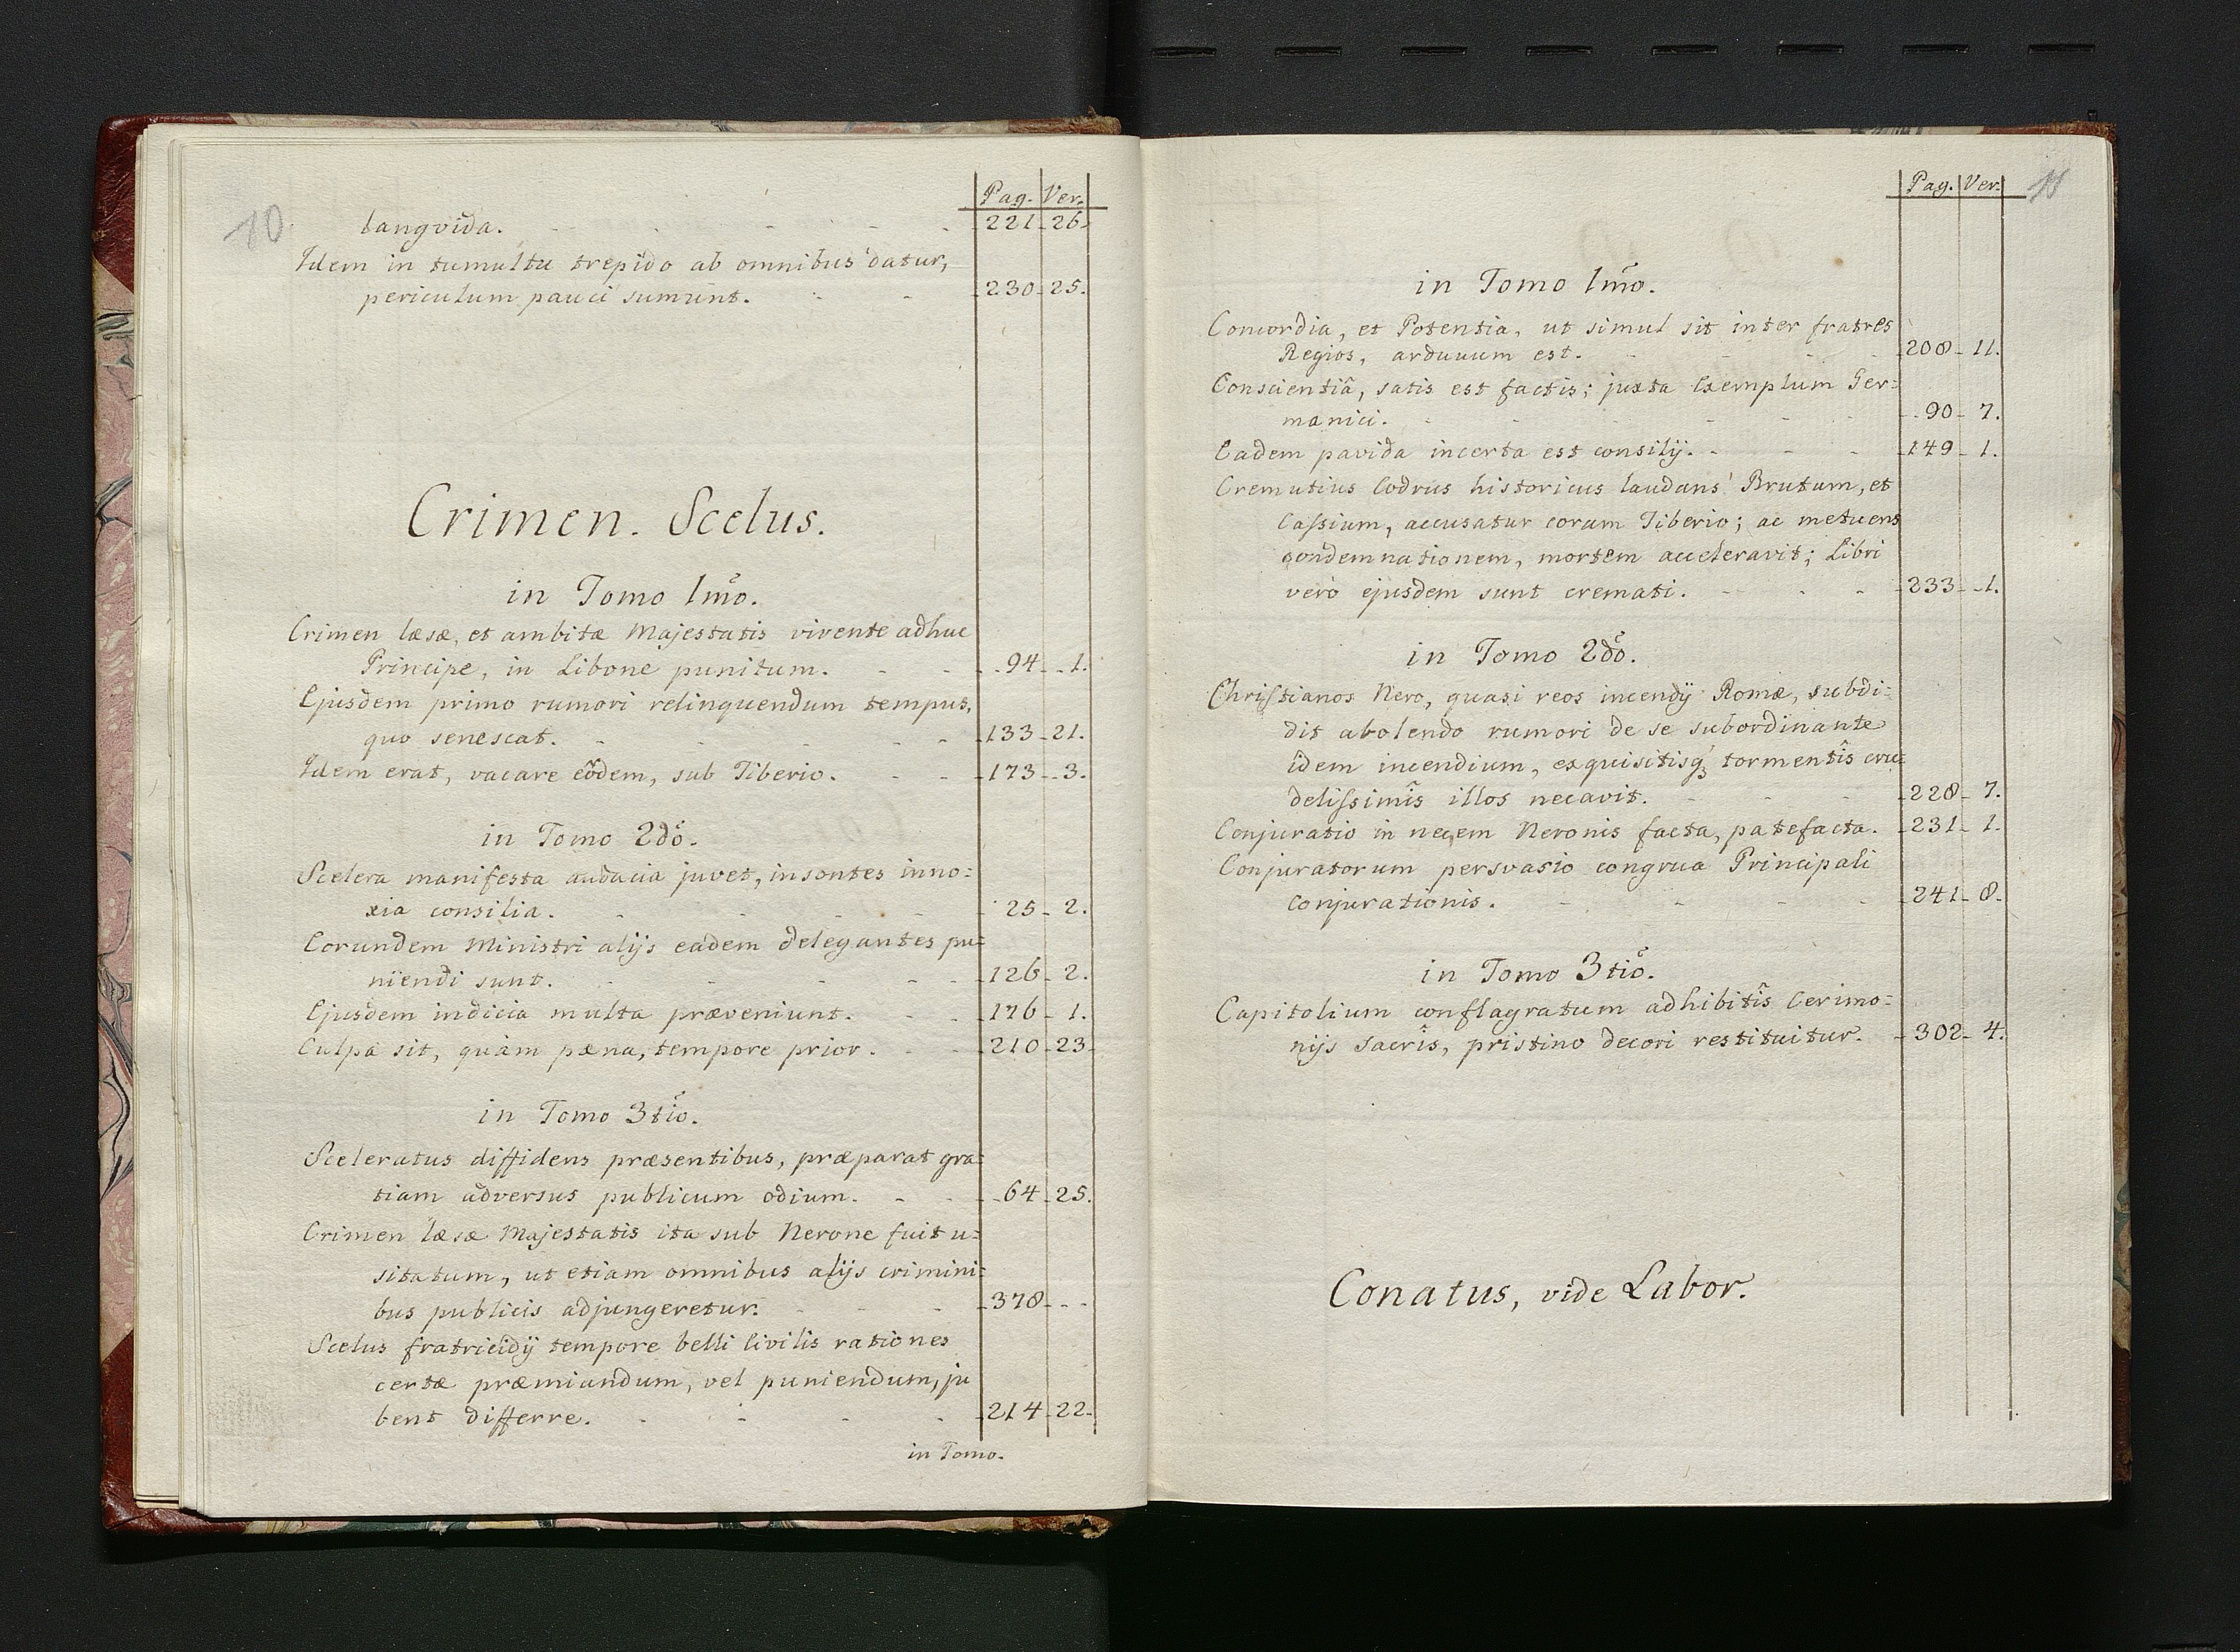 10.
Pag. Ver.
langvida. - - - - - 221 - 26.
Idem in tumultu trepido ab omnibus datur,
periculum pauci sumunt. - - 230 - 25.
Crimen. Scelus.
in Tomo 1mo.
Crimen læsæ, et ambitæ Majestatis vivente adhuc
Principe, in Libone punitum. - - 94 - 1.
Ejusdem primo rumori relinquendum tempus,
quo senescat. - - - - - 133 - 21.
Idem erat, vacare eôdem, sub Tiberio. - - 173 - 3.
in Tomo 2do.
Scelera manifesta audacia juvet, insontes inno=
xia consilia. - - - - 25 - 2.
Eorundem Ministri alijs eadem delegantes pu=
niendi sunt. - - - - - 126 - 2.
Ejusdem indicia multa præveniunt. - - 176 - 1.
Culpa sit, quàm pæna, tempore prior. - - 210 - 23.
in Tomo 3tio.
Sceleratus diffidens præsentibus, præparat gra=
tiam adversus publicum odium. - - 64 - 25.
Crimen læsæ Majestatis ita sub Nerone fuit u=
sitatum, ut etiam omnibus alijs crimini=
bus publicis adjungeretur. - - - 378 - - -
Scelus fratricidij tempore belli Civilis rationes
certæ præmiandum, vel puniendum, ju
bent differre. - - - - 214 - 22.
in Tomo.
Pag. Ver.
11
in Tomo 1mo.
Concordia, et Potentia, ut simul sit inter fratres
Regios, arduuum est. - - - - 208 - 11.
Conscientiâ, satis est factis; juxta Exemplum Ger=
manici. - - - - - 90 - 7.
Eadem pavida incerta est consilij. - - - 149 - 1.
Cremutius Codrus historicus laudans Brutum, et
Cassium, accusatur coram Tiberio; ac metuens
condemnationem, mortem acceleravit; Libri
verò ejusdem sunt cremati. - - - 233 - 1.
in Tomo 2do.
Christianos Nero, quasi reos incendij Romæ, subdi=
dit abolendo rumori de se subordinante
idem incendium, exquisitisq3 tormentîs cru=
delissimîs illos necavit. - - - 228 - 7.
Conjuratio in necem Neronis facta, patefacta. - 231 - 1.
Conjuratorum persvasio congrua Principali
Conjurationis. - - - - 241 - 8.
in Tomo 3tio.
Capitolium conflagratum adhibitîs Cerimo=
nijs sacrîs, pristino decori restituitur. - 302 - 4.
Conatus, vide Labor.